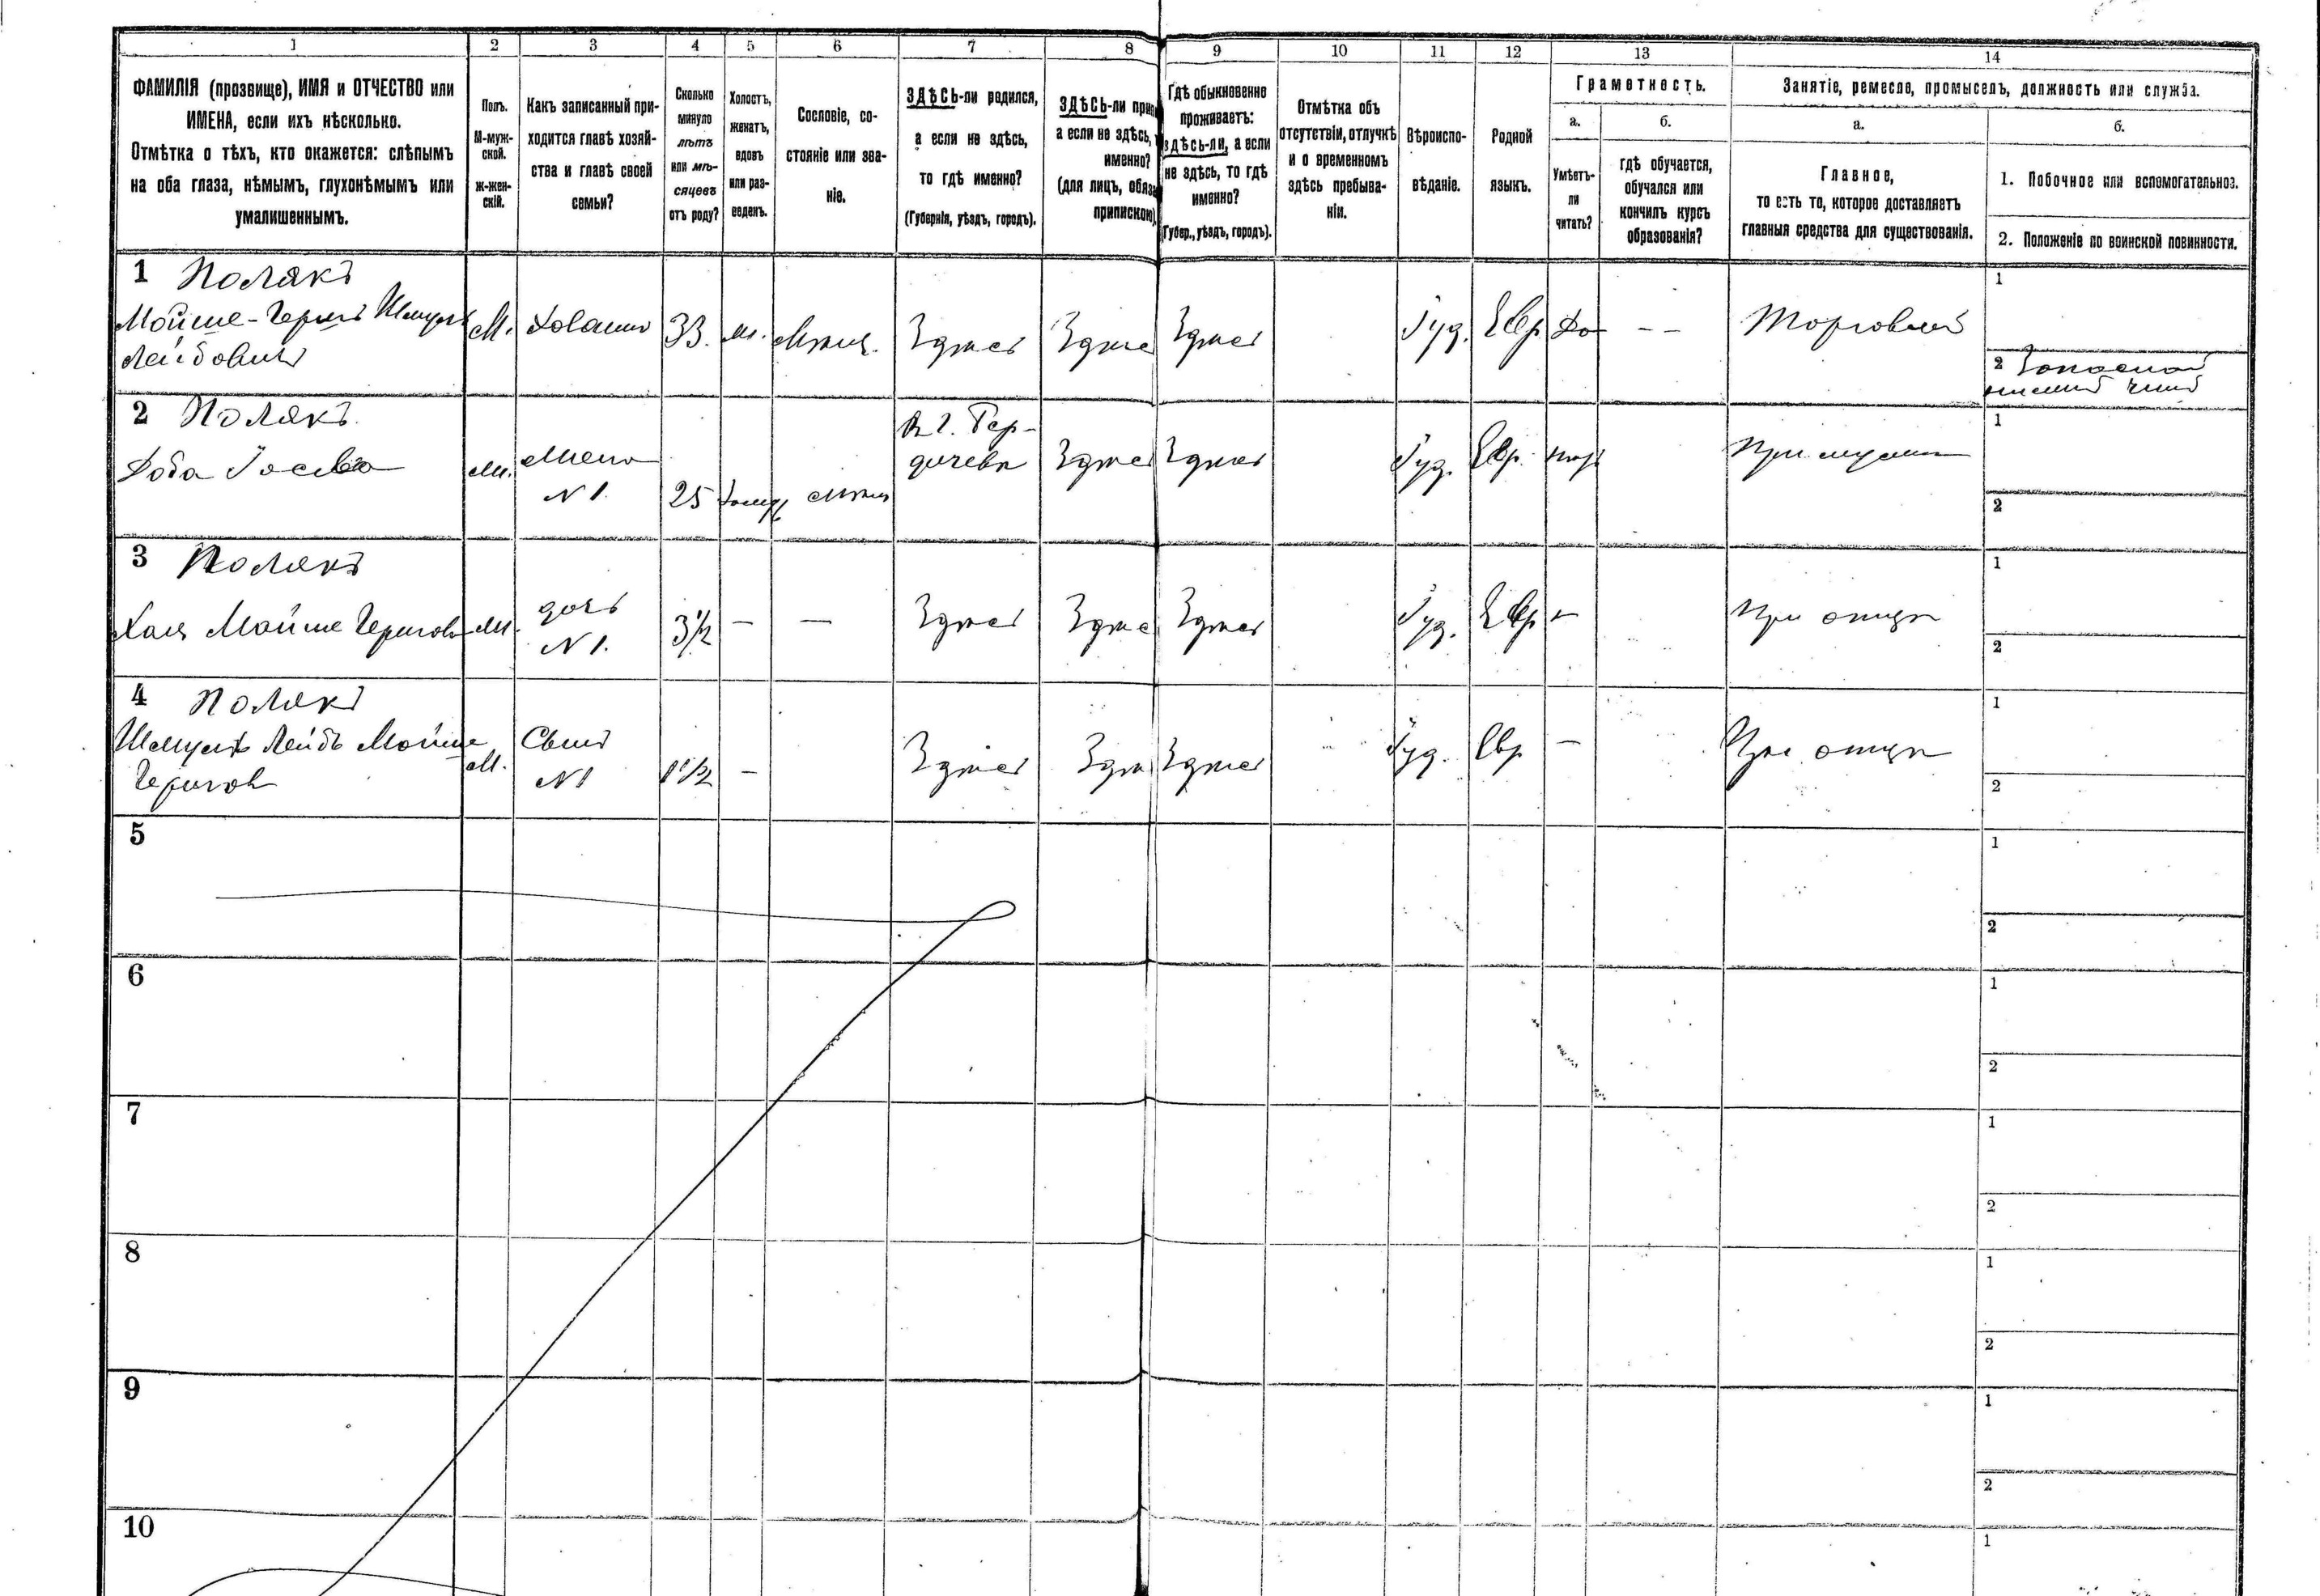 1 2 3 4 5 6 7 8 9 10 11 12 13 14
ФАМИЛІЯ (прозвище), ИМЯ и ОТЧЕСТВО или
ИМЕНА, если ихъ нѣсколько.
Отмѣтка о тѣхъ, кто окажется: слѣпымъ
на оба глаза, нѣмымъ, глухонѣмымъ или
умалишеннымъ.
Полъ.
М-муж-
ской.
Ж-жен-
скій.
Какъ записанный при-
ходится главѣ хозяй-
ства и главѣ своей
семьи?
Сколько
минуло
лѣтъ
или мѣ-
сяцевъ
отъ роду?
Холостъ,
женатъ,
вдовъ
или раз-
веденъ.
Сословіе, со-
стояніе или зва-
ніе.
ЗДѢСЬ-ли родился,
а если не здѣсь,
то гдѣ именно?
(Губернія, уѣздъ, городъ).
ЗДѢСЬ-ли
а если не здѣсь,
именно?
(для лицъ,
припискою)
Гдѣ обыкновенно
проживаетъ:
здѣсь-ли, а если
не здѣсь, то гдѣ
именно?
(Губер., уѣздъ, городъ).
Отмѣтка объ
отсутствіи, отлучкѣ
и о временномъ
здѣсь пребыва-
ніи.
Вѣроиспо-
вѣданіе.
Родной
языкъ.
Грамотность.
а.
Умѣетъ-
ли
читать?
б.
гдѣ обучается,
обучался или
кончилъ курсъ
образованія?
Занятіе, ремесло, промыселъ, должность или служба.
а.
Главное,
то есть то, которое доставляетъ
главныя средства для существованія.
б.
1. Побочное или вспомогательное.
2. Положеніе по воинской повинности.
1 Полякъ
Мойше-
Лейбовичъ
М. 33. Здѣсь Здѣсь Здѣсь Іуд. Евр. Да - - Торговлей
1
2 Запасной
2 Полякъ
Іосева
N 1. 25
Бер-
дичевѣ
Здѣсь Здѣсь Іуд. Евр. При мужѣ
1
2
3 Полякъ
Хая Мойше
дочь
N 1.
3 1/2 — — Здѣсь Здѣсь Здѣсь Іуд. Евр. — При отцѣ
1
2
4 Полякъ
Лейбъ Мойше
М.
Сынъ
N 1
1 1/2 — Здѣсь Здѣ Здѣсь Іуд. Евр — При отцѣ
1
2
5
1
2
6
1
2
7
1
2
8
1
2
9
1
2
10
1